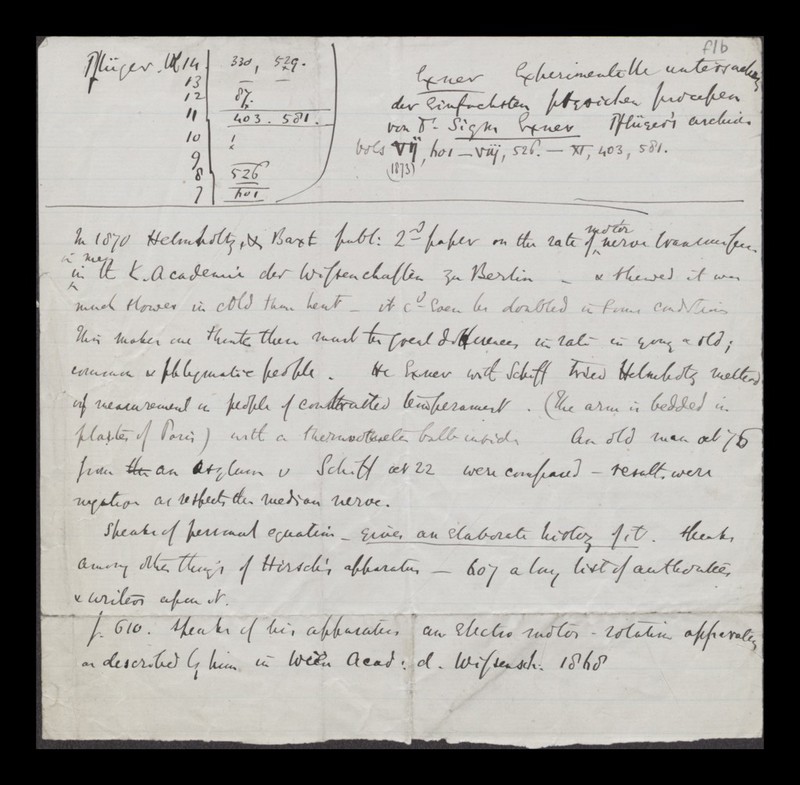 f1b
Pflüger. Vol 14. 330, 529.
13 — —
12 87.
11 403. 581.
10 1
9
8 526
7 601
Exner Experimentelle untersuchen
der Einfachsten psychichen processen
von Dr. Sigm Exner Pflüger's archiv
vols VII, 601 — VIII, 526. — XI, 403, 581.
(1873)
In 1870 Helmholtz, & Baxt publ: 2nd paper on the rate of motor nerve transmission
in man
in the K. Academie der Wissenchaften zu Berlin — & shewed it was
much slower in cold than heat — it cd. even be doubled in some conditions
This makes one think there must be great differences in rate in young & old;
common & phlegmatic people. He Exner with Schiff tried Helmholtz method
of measurement in people of contrasted temperament. (The arm is bedded in
plaster of Paris) with a thermometer bulb inside An old man aet 76
from the an asylum v Schiff aet 22 were compared — results were
negative as respects the median nerve.
Speaks of personal equation — gives an elaborate history of it. Speaks
among other things of Hirsch's apparatus — 607 a long list of authorities
& writers upon it.
p. 610. Speaks of his apparatus an Electro motor - rotation apparatus
as described by him in Wien Acad: d. Wissensch: 1868